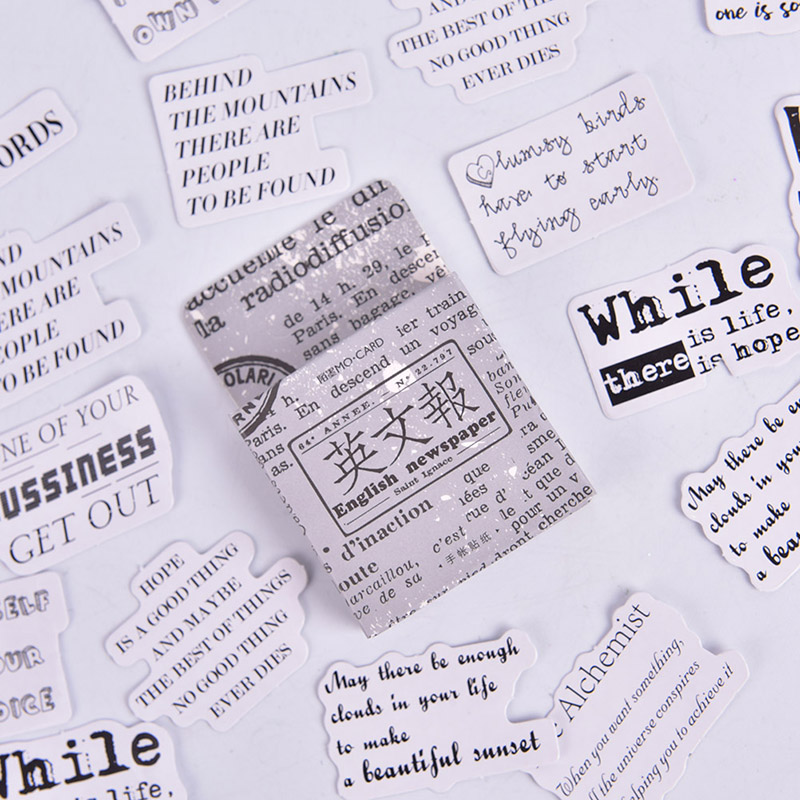 OWN
AND
THE BEST OF THE
NO GOOD THING
EVER DIES
one is so
BEHIND
THE MOUNTAINS
THERE ARE
PEOPLE
TO BE FOUND
ORDS
Clumsy birds
have to start
flying early.
MOUNTAINS
ERE ARE
EOPLE
O BE FOUND
While
is life,
there is hope
accueille le du
la radiodiffusion
de 14 h. 29, le
Paris. En descen
sans bagage.
OLARI
MEMO·CARD
ier train
En descend un voyag
64e ANNEE. No 22.797
英文報
English newspaper
Saint Ignace
que
d'inaction
c'est
oute
pour un v
arcaillou,
手帳貼紙
dront cherche
ve de sa
NE OF YOUR
USSINESS
GET OUT
May there be en
clouds in your
to make
a beau
HOPE
IS A GOOD THING
AND MAYBE
THE BEST OF THINGS
NO GOOD THING
EVER DIES
SELF
OUR
OICE
May there be enough
clouds in your life
to make
a beautiful sunset
Alchemist
When you want something,
ll the universe conspires
helping you to achieve it
While
is life,